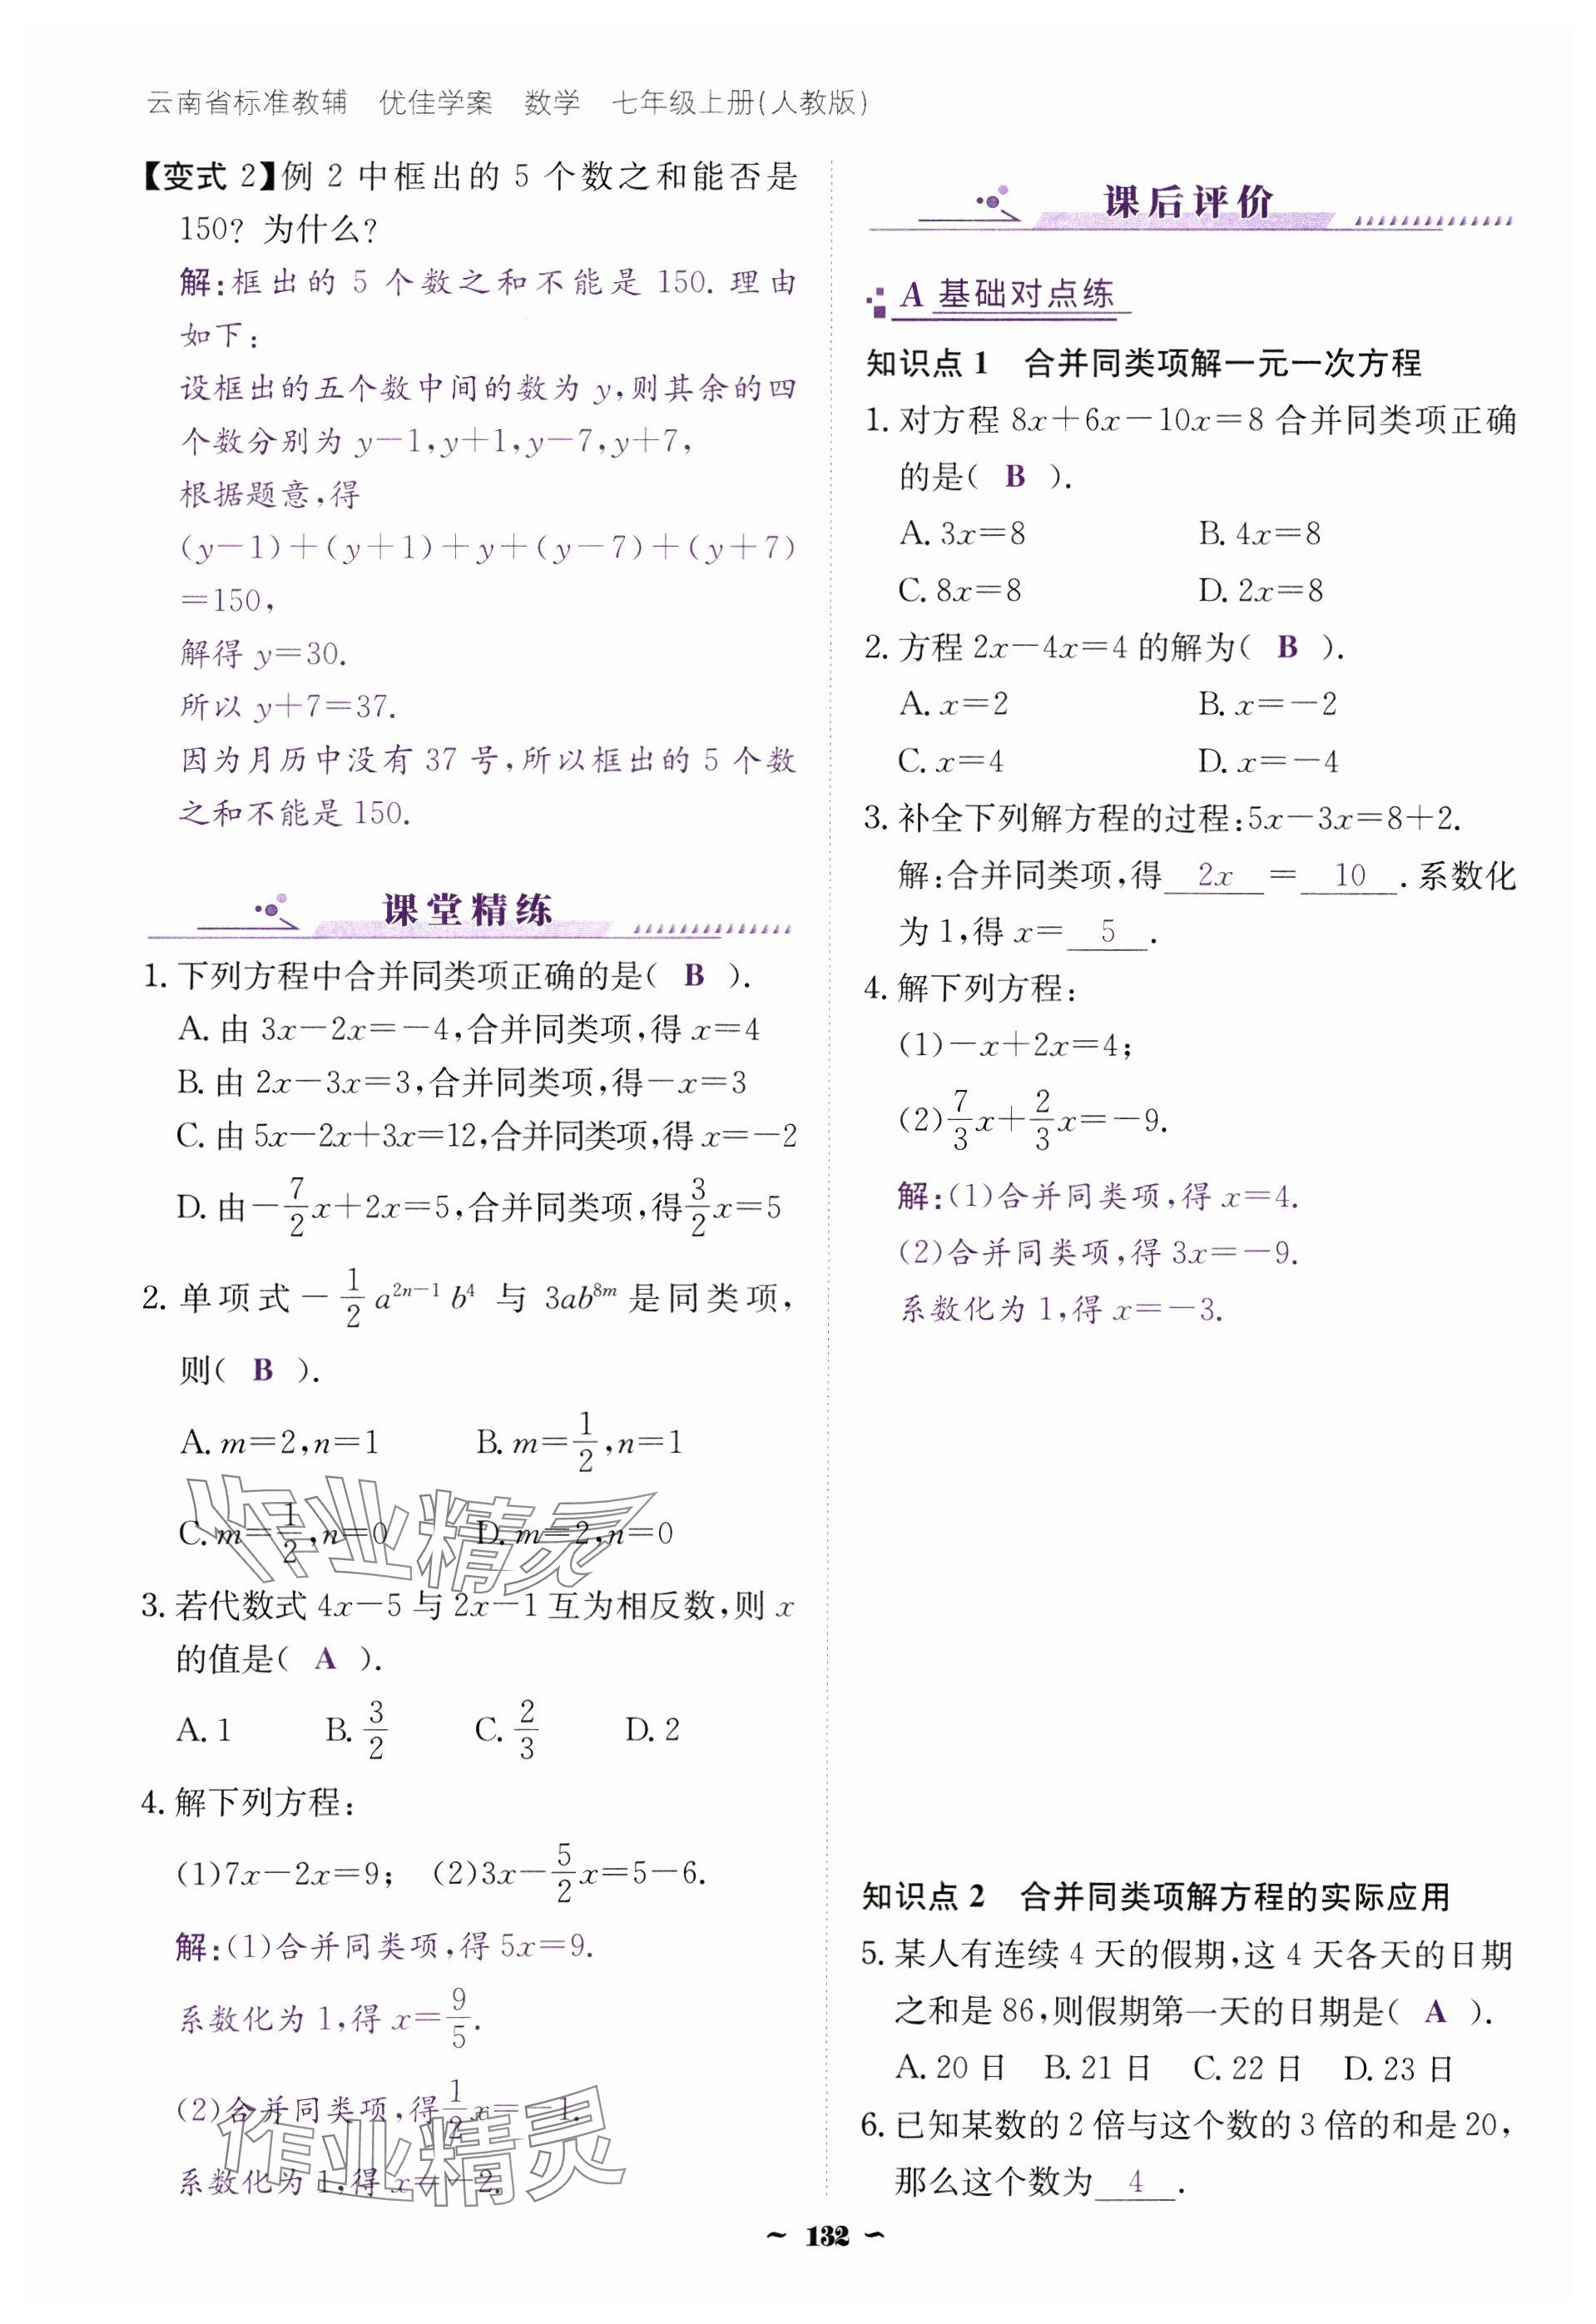 云南省标准教辅 优佳学案 数学 七年级上册(人教版)
【变式 2】例 2 中框出的 5 个数之和能否是
150? 为什么?
解:框出的 5 个数之和不能是 150. 理由
如下:
设框出的五个数中间的数为 y,则其余的四
个数分别为 y-1,y+1,y-7,y+7,
根据题意,得
(y-1)+(y+1)+y+(y-7)+(y+7)
=150,
解得 y=30.
所以 y+7=37.
因为月历中没有 37 号,所以框出的 5 个数
之和不能是 150.
课堂精练
1. 下列方程中合并同类项正确的是( B ).
A. 由 3x-2x=-4,合并同类项,得 x=4
B. 由 2x-3x=3,合并同类项,得-x=3
C. 由 5x-2x+3x=12,合并同类项,得 x=-2
D. 由-7/2x+2x=5,合并同类项,得3/2x=5
2. 单项式 -1/2 a^{2n-1} b^4 与 3ab^{8m} 是同类项,
则( B ).
A. m=2,n=1 B. m=1/2,n=1
C. m=1/2,n=0 D. m=2,n=0
3. 若代数式 4x-5 与 2x-1 互为相反数,则 x
的值是( A ).
A. 1 B. 3/2 C. 2/3 D. 2
4. 解下列方程:
(1)7x-2x=9; (2)3x-5/2x=5-6.
解:(1)合并同类项,得 5x=9.
系数化为 1,得 x=9/5.
(2)合并同类项,得1/2x=-1.
系数化为 1,得 x=-2.
课后评价
A 基础对点练
知识点 1 合并同类项解一元一次方程
1. 对方程 8x+6x-10x=8 合并同类项正确
的是( B ).
A. 3x=8 B. 4x=8
C. 8x=8 D. 2x=8
2. 方程 2x-4x=4 的解为( B ).
A. x=2 B. x=-2
C. x=4 D. x=-4
3. 补全下列解方程的过程:5x-3x=8+2.
解:合并同类项,得 2x = 10 . 系数化
为 1,得 x= 5 .
4. 解下列方程:
(1)-x+2x=4;
(2)7/3x+2/3x=-9.
解:(1)合并同类项,得 x=4.
(2)合并同类项,得 3x=-9.
系数化为 1,得 x=-3.
知识点 2 合并同类项解方程的实际应用
5. 某人有连续 4 天的假期,这 4 天各天的日期
之和是 86,则假期第一天的日期是( A ).
A. 20 日 B. 21 日 C. 22 日 D. 23 日
6. 已知某数的 2 倍与这个数的 3 倍的和是 20,
那么这个数为 4 .
作业精灵
作业精灵
~ 132 ~